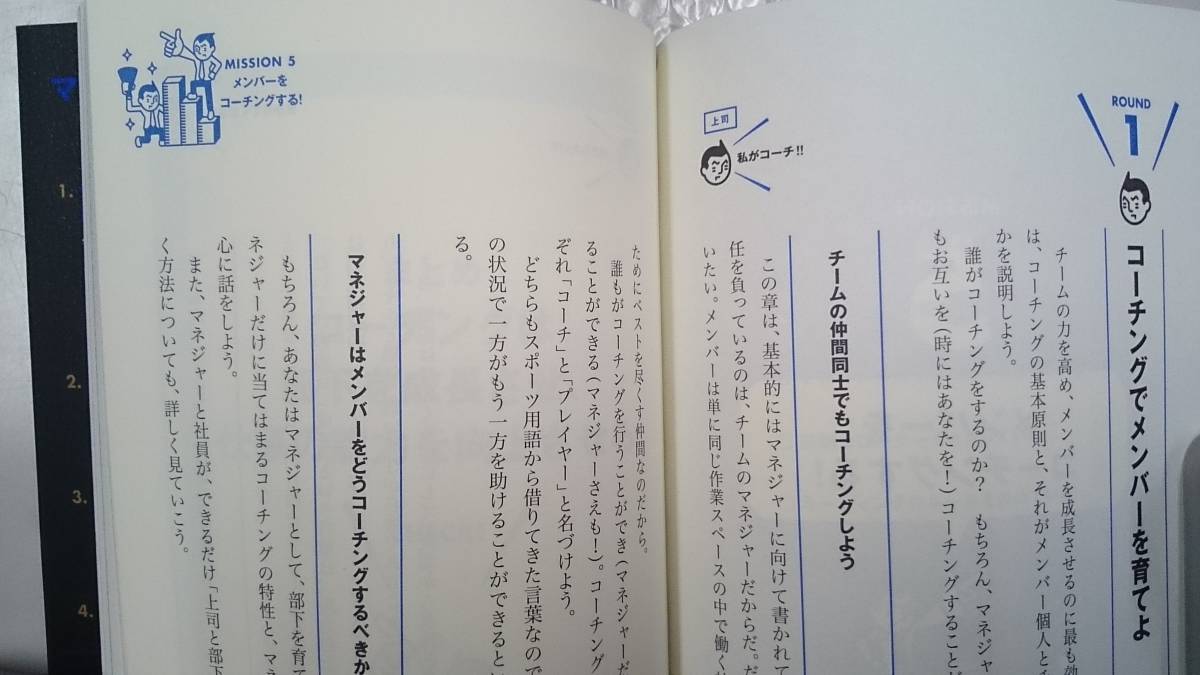 ROUND
1
コーチングでメンバーを育てよ
チームの力を高め、メンバーを成長させるのに最も効
は、コーチングの基本原則と、それがメンバー個人と
かを説明しよう。
誰がコーチングをするのか？　もちろん、マネジャ
もお互いを（時にはあなたを！）コーチングすることが
上司
私がコーチ!!
チームの仲間同士でもコーチングしよう
この章は、基本的にはマネジャーに向けて書かれて
任を負っているのは、チームのマネジャーだからだ。だ
いたい。メンバーは単に同じ作業スペースの中で働く
MISSION 5
メンバーを
コーチングする!
ためにベストを尽くす仲間なのだから。
誰もがコーチングを行うことができ（マネジャーだ
ることができる（マネジャーさえも！）。コーチング
ぞれ「コーチ」と「プレイヤー」と名づけよう。
どちらもスポーツ用語から借りてきた言葉なので
の状況で一方がもう一方を助けることができると
る。
マネジャーはメンバーをどうコーチングするべきか
もちろん、あなたはマネジャーとして、部下を育て
ネジャーだけに当てはまるコーチングの特性と、マネ
心に話をしよう。
また、マネジャーと社員が、できるだけ「上司と部下
く方法についても、詳しく見ていこう。
1.
2.
3.
4.